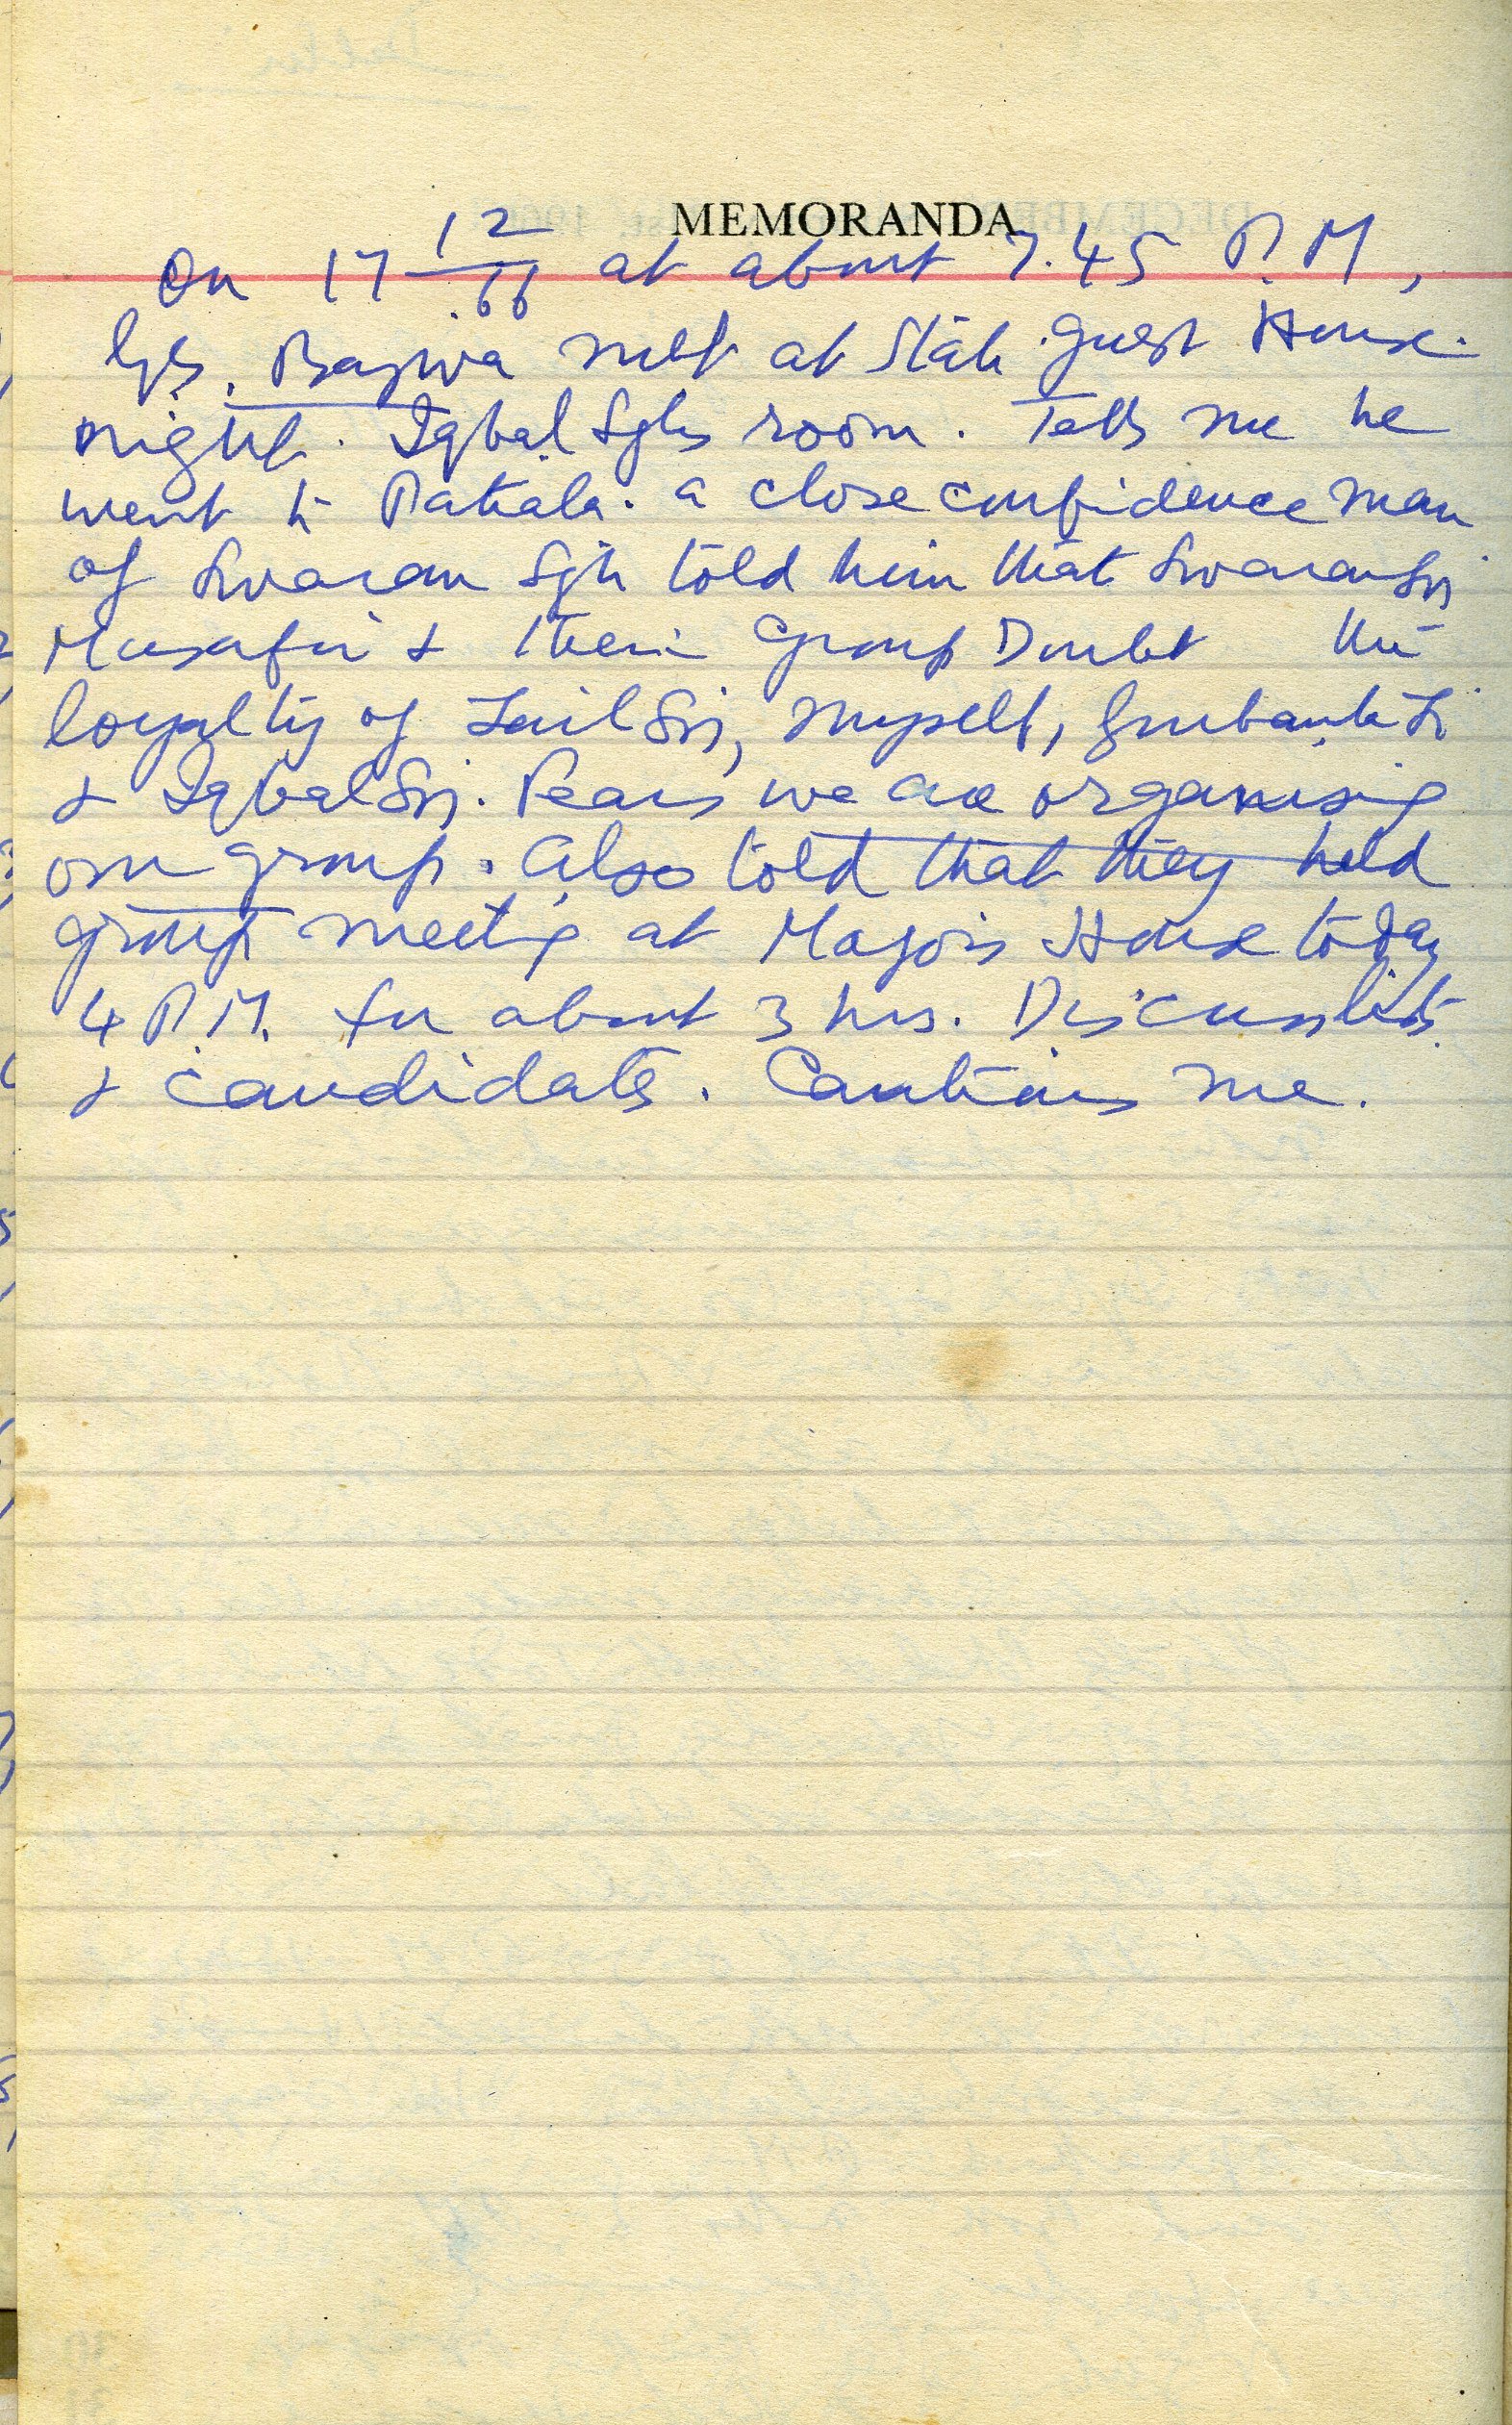 MEMORANDA
On 17 12/66 at about 7.45 P.M,
Bajwa met at State guest House.
night. Iqbal Sghs room. Tells me he
went to Patiala. a close confidence man
of Swaran Sgh told him that Swaran
Musafir & their Group Doubt the
loyalty of Zail myself,
& Iqbal Fears we are organising
own group. also told that they held
group meeting at Majors House today
4 P.M. for about 3 hrs. Discuss lists
& candidates. Cautions me.